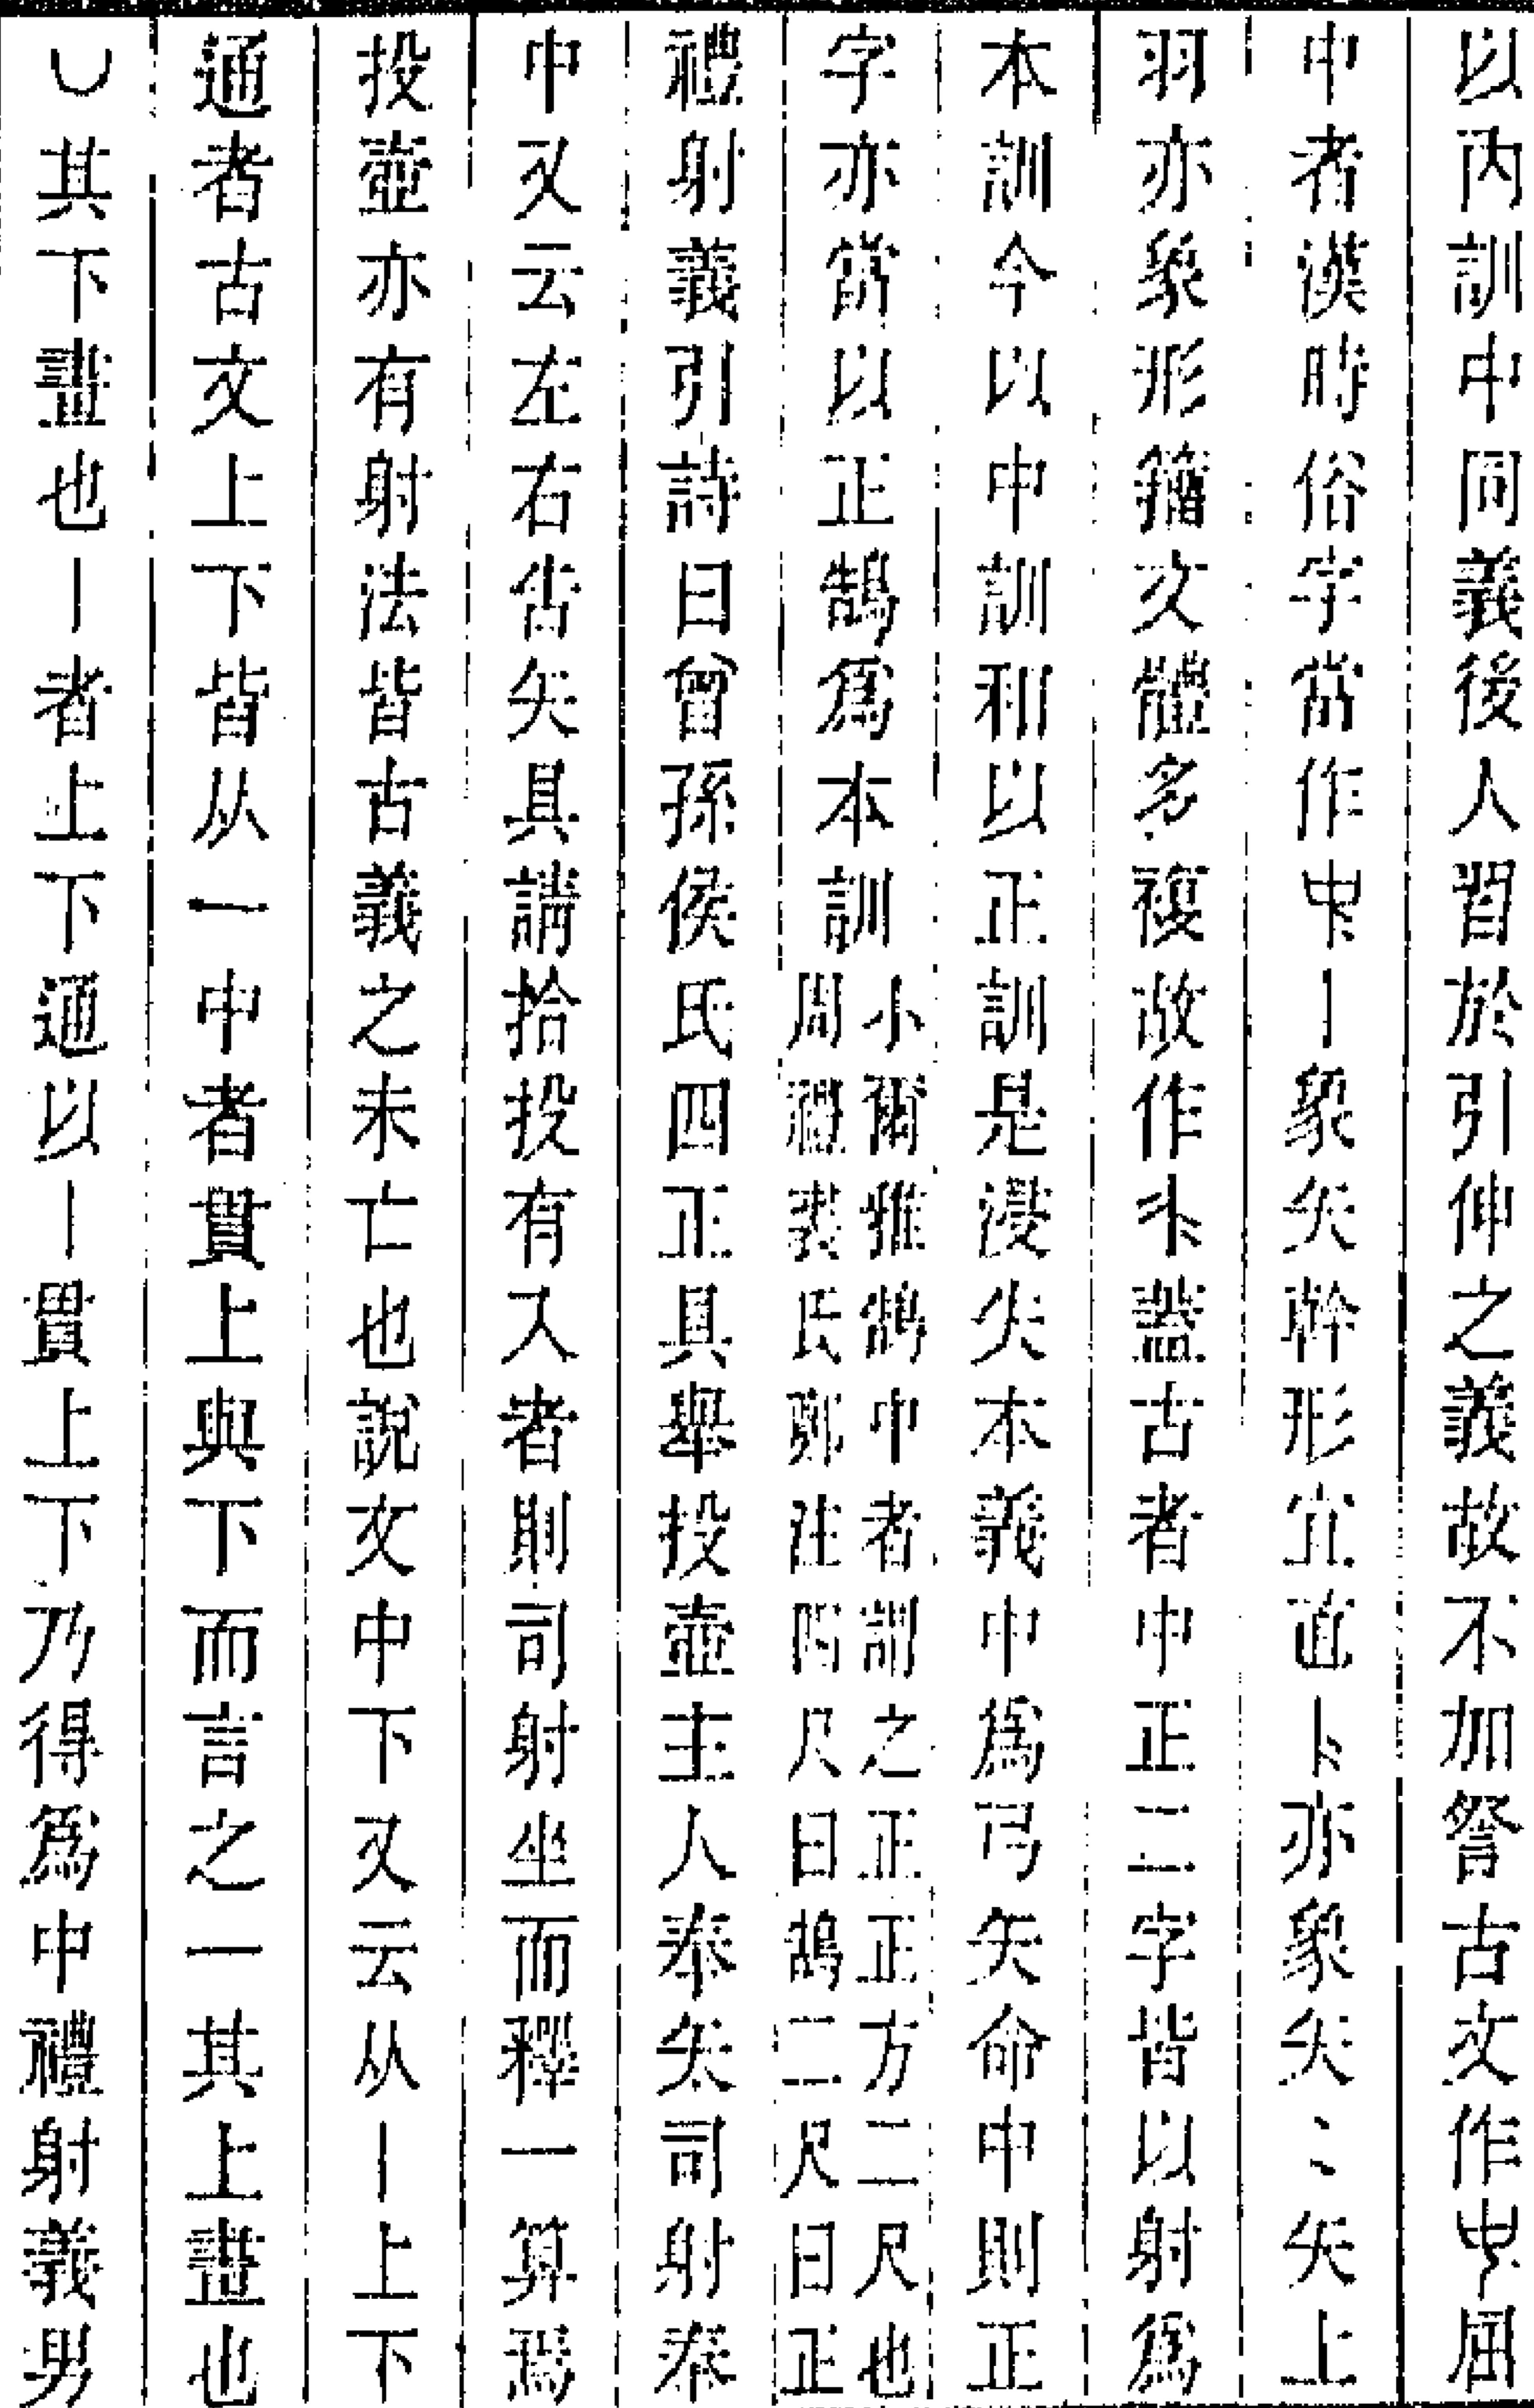 以內訓中同義後人習於引伸之義故不加詧古文作𠁧屈
中者漢時俗字當作𠁩丨象矢幹形宜直卜亦象矢〻矢上
羽亦象形籀文體多複故作蓋古者中正二字皆以射爲
本訓今以中訓和以正訓是浸失本義中爲弓矢命中則正
字亦當以正鵠爲本訓小爾雅鵠中者謂之正正方二尺也周禮裘氏鄭注四尺曰鵠二尺曰正
禮射義引詩曰曾孫侯氏四正具舉投壺主人奉矢司射奉
中又云左右告矢具請拾投有入者則司射坐而釋一算焉
投壺亦有射法皆古義之未亡也說文中下又云从丨上下
通者古文上下皆从一中者貫上與下而言之一其上畫也
㇃其下畫也丨者上下通以丨貫上下乃得爲中禮射義男